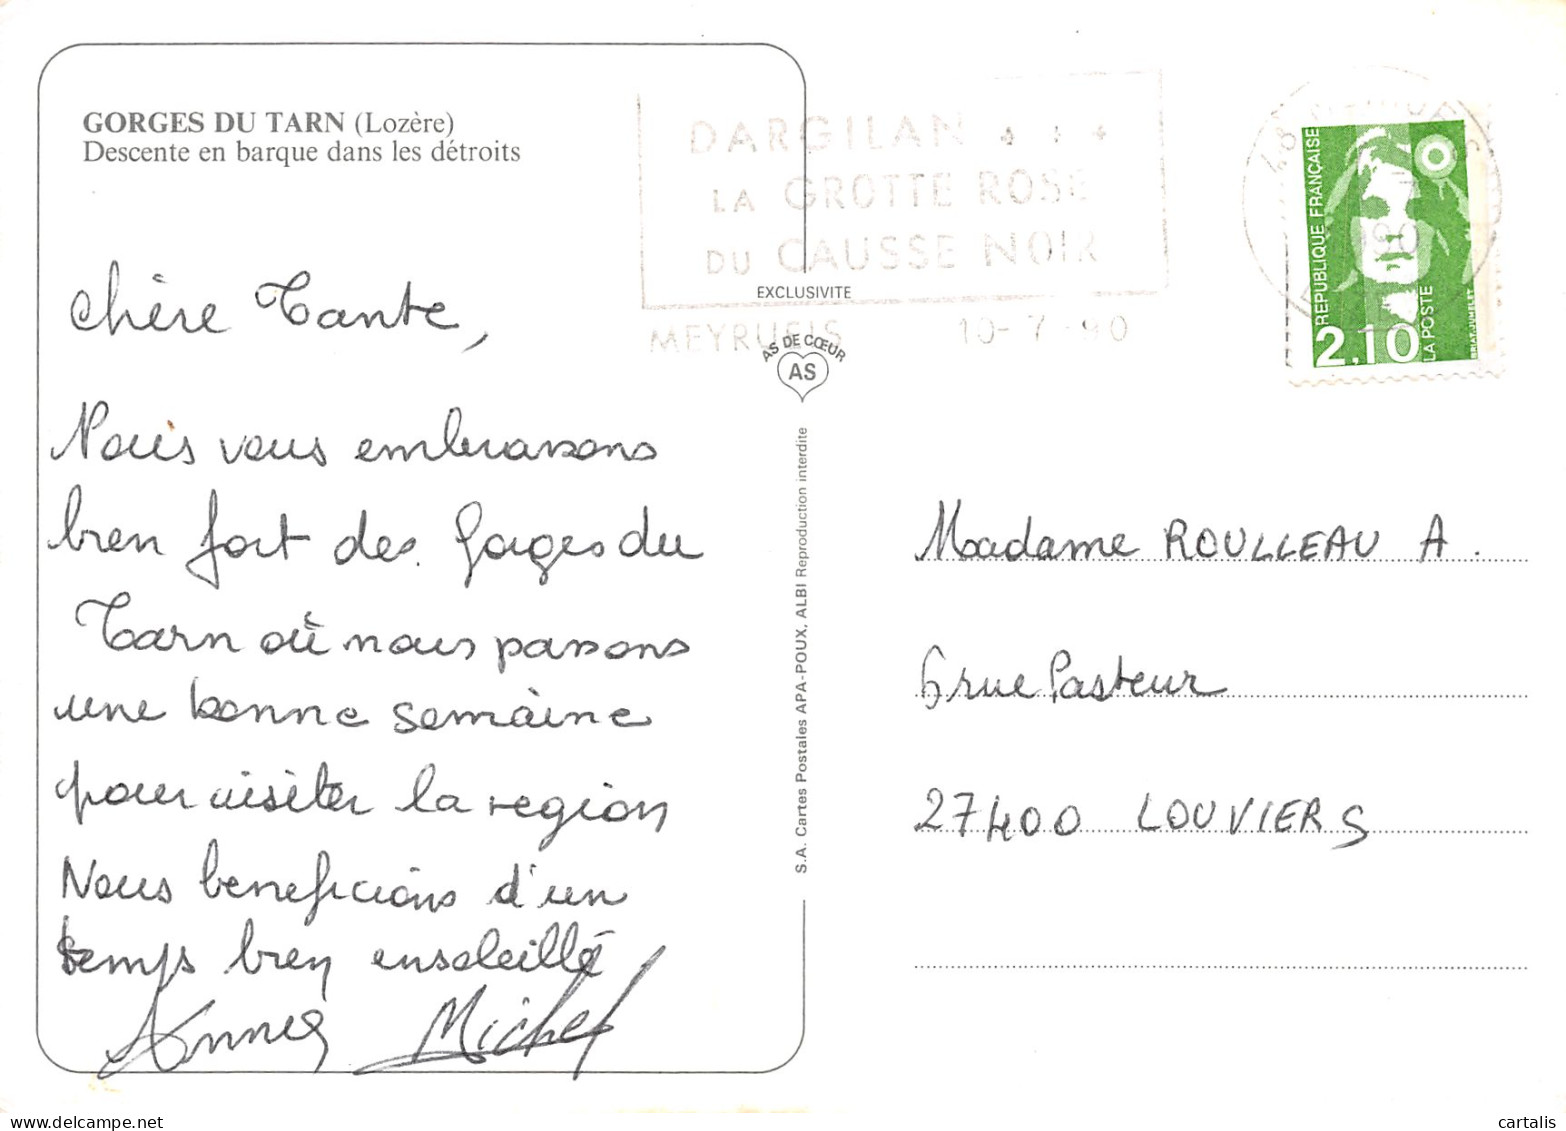 GORGES DU TARN (Lozère)
Descente en barque dans les détroits
DARGILAN
LA GROTTE ROSE
DU CAUSSE NOIR
MEYRUEIS 10-7-90
EXCLUSIVITE
AS DE CŒUR
AS
REPUBLIQUE FRANÇAISE
2,10
LA POSTE
Chère Tante,
Nous vous embrassons
bien fort des Gorges du
Tarn où nous passons
une bonne semaine
pour visiter la region
Nous beneficions d'un
temps bien ensoleillé
Annes Michel
S.A. Cartes Postales APA-POUX, ALBI Reproduction interdite
Madame ROULLEAU A.
6 rue Pasteur
27400 LOUVIERS
delcampe.net
cartalis